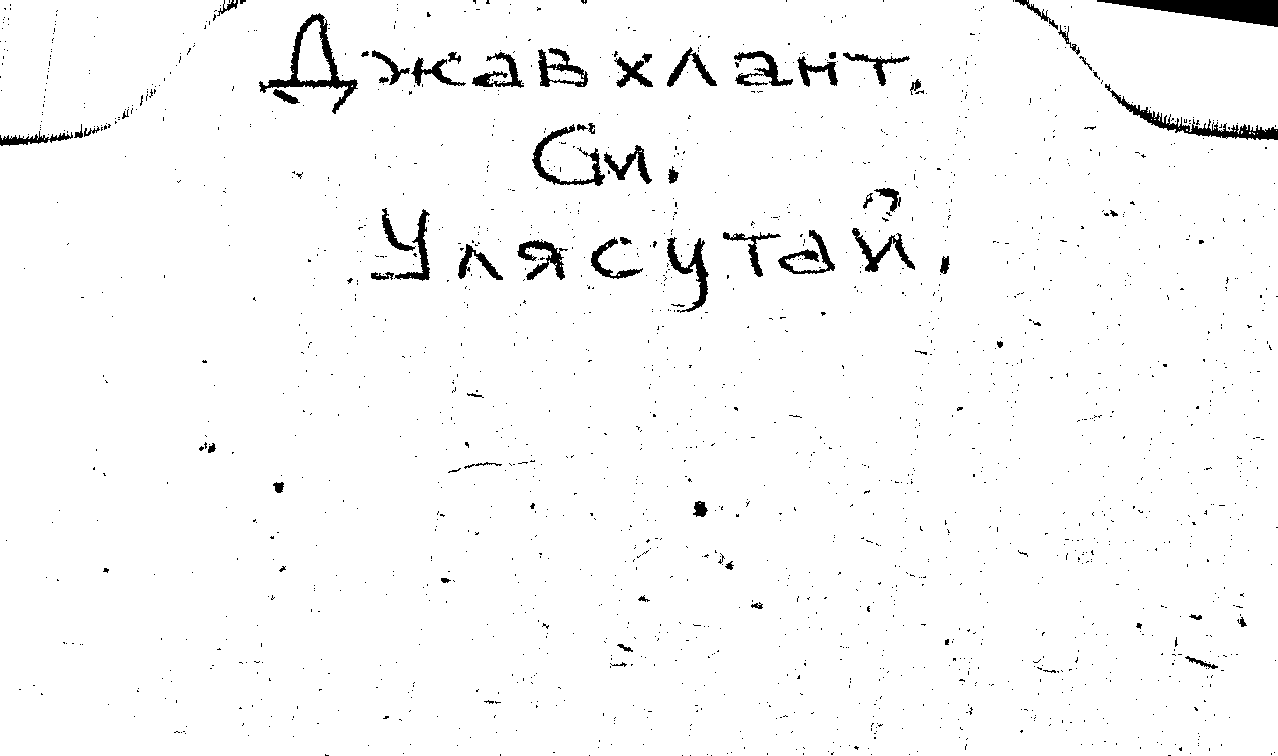 Джавхлант.
См.
Улясутай.